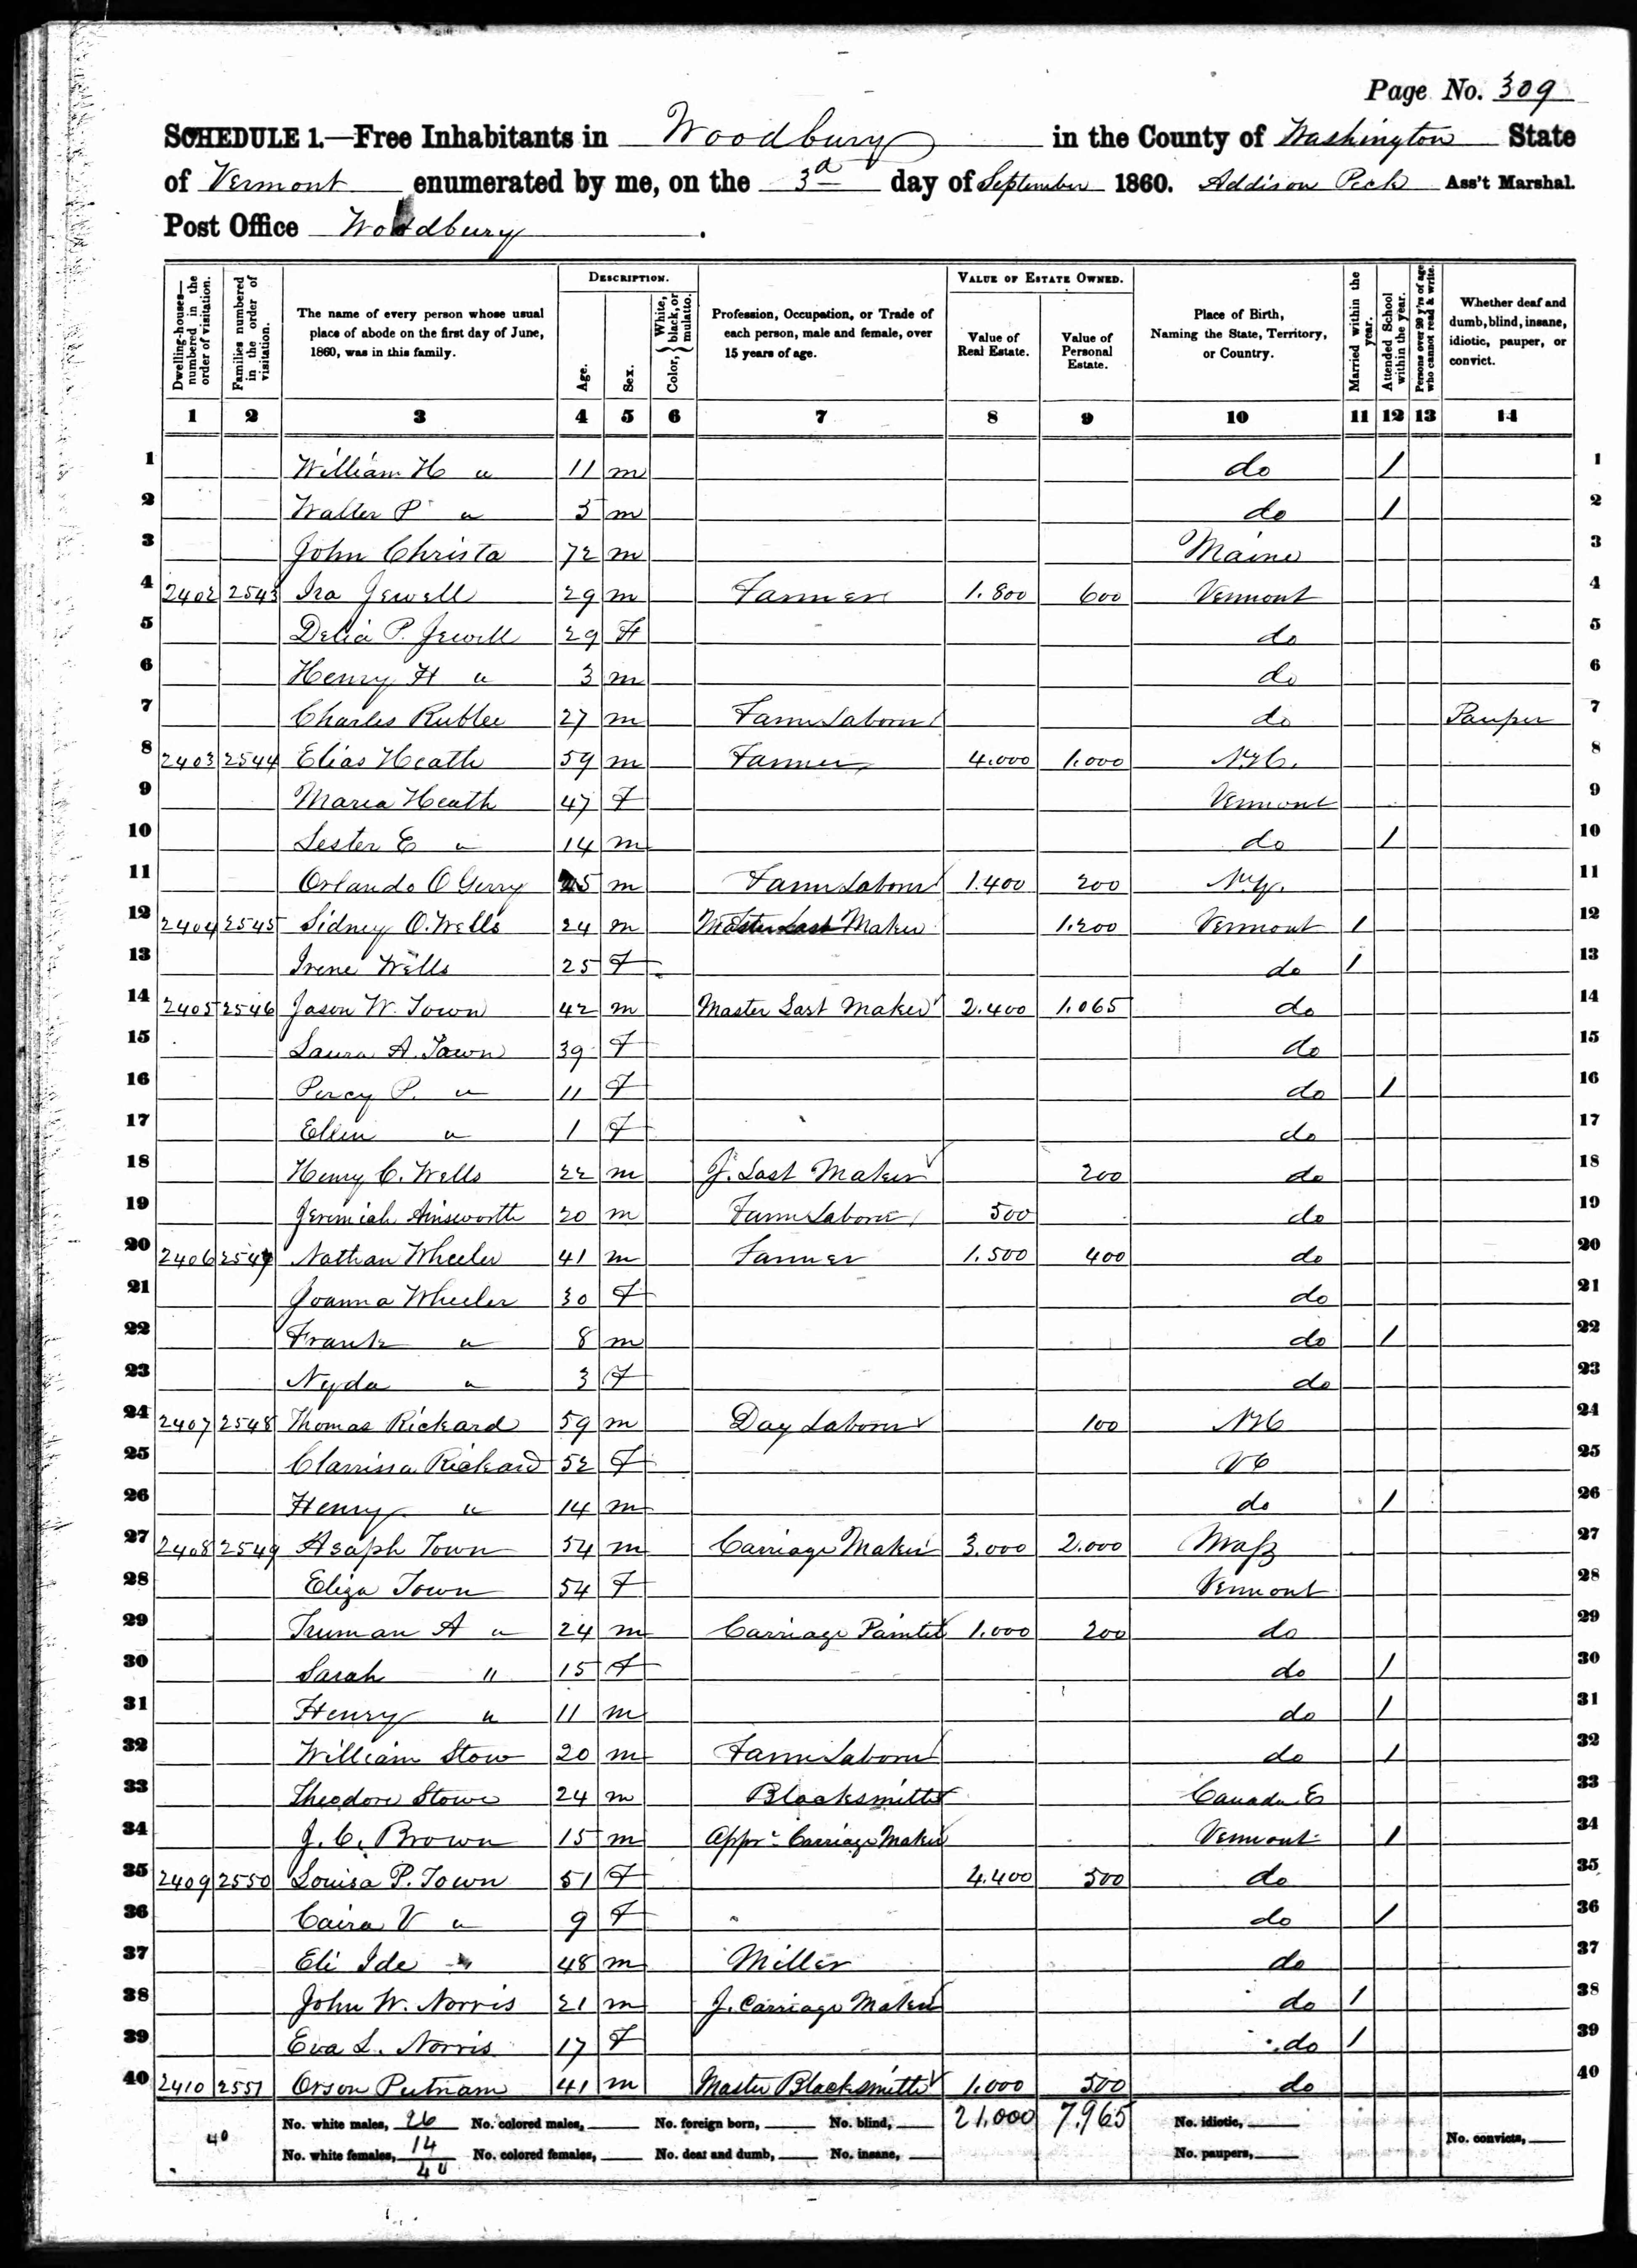 Page No. 309
SCHEDULE 1.—Free Inhabitants in Woodbury in the County of Washington State
of Vermont enumerated by me, on the 3d day of September 1860. Addison Peck Ass't Marshal.
Post Office Woodbury.
Dwelling-houses—numbered in the order of visitation. Families numbered in the order of visitation. The name of every person whose usual place of abode on the first day of June, 1860, was in this family. DESCRIPTION. Age. Sex. Color, { White, black, or mulatto. Profession, Occupation, or Trade of each person, male and female, over 15 years of age. VALUE OF ESTATE OWNED. Value of Real Estate. Value of Personal Estate. Place of Birth, Naming the State, Territory, or Country. Married within the year. Attended School within the year. Persons over 20 y'rs of age who cannot read & write. Whether deaf and dumb, blind, insane, idiotic, pauper, or convict.
1 2 3 4 5 6 7 8 9 10 11 12 13 14
1 William H " 11 m do 1 1
2 Walter P " 5 m do 1 2
3 John Christa 72 m Maine 3
4 2402 2543 Ira Jewell 29 m Farmer 1.800 600 Vermont 4
5 Delia P. Jewell 29 F do 5
6 Henry H " 3 m do 6
7 Charles Rublee 27 m Farm Laborer do Pauper 7
8 2403 2544 Elias Heath 59 m Farmer 4.000 1.000 N.H. 8
9 Maria Heath 47 F Vermont 9
10 Lester E " 14 m do 1 10
11 Orlando O Gerry m Farm Laborer 1.400 200 N.Y. 11
12 2404 2545 Sidney O. Wells 24 m Master Last Maker 1.200 Vermont 1 12
13 Irene Wells 25 F do 1 13
14 2405 2546 Jason W. Town 42 m Master Last Maker 2.400 1.065 do 14
15 Laura A. Town 39 F do 15
16 Percy P. " 11 F do 1 16
17 Ellen " 1 F do 17
18 Henry C. Wells 22 m J. Last Maker 200 do 18
19 Jeremiah Ainsworth 20 m Farm Laborer 500 do 19
20 2406 2547 Nathan Wheeler 41 m Farmer 1.500 400 do 20
21 Joanna Wheeler 30 F do 21
22 Frank " 8 m do 1 22
23 Nyda " 3 F do 23
24 2407 2548 Thomas Rickard 59 m Day Laborer 100 NH 24
25 Clarrissa Rickard 52 F Vt 25
26 Henry " 14 m do 1 26
27 2408 2549 Asaph Town 54 m Carriage Maker 3.000 2.000 Mass 27
28 Eliza Town 54 F Vermont 28
29 Truman A " 24 m Carriage Painter 1.000 200 do 29
30 Sarah " 15 F do 1 30
31 Henry " 11 m do 1 31
32 William Stow 20 m Farm Laborer do 1 32
33 Theodore Stowe 24 m Blacksmith Canada E 33
34 J. C. Brown 15 m Appr. Carriage Maker Vermont 1 34
35 2409 2550 Louisa P. Town 51 F 4.400 500 do 35
36 Caira V " 9 F do 1 36
37 Eli Ide 48 m Miller do 37
38 John W. Norris 21 m J. Carriage Maker do 1 38
39 Eva L. Norris 17 F do 1 39
40 2410 2551 Orson Putnam 41 m Master Blacksmith 1.000 500 do 40
40 No. white males, 26 No. colored males, No. foreign born, No. blind, 21,000 7,965 No. idiotic,
No. white females, 14 No. colored females, No. deaf and dumb, No. insane, No. paupers, No. convicts,
40